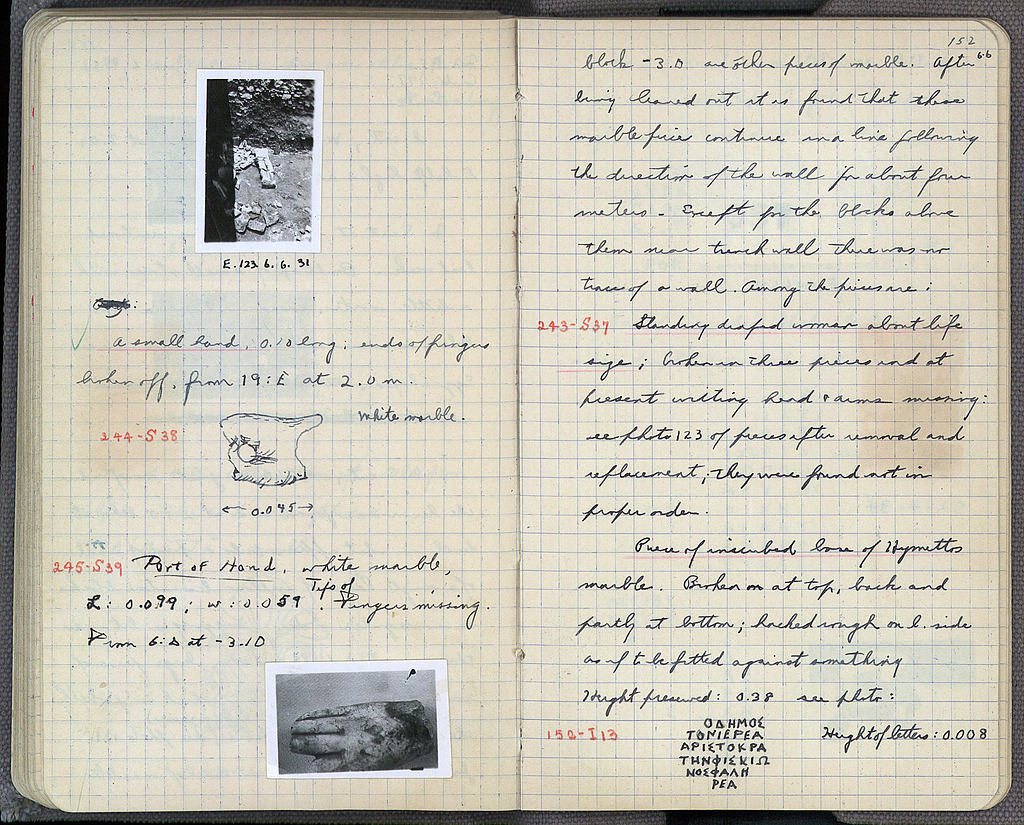 E.123 6. 6. 31
A small hand, 0.10 long; ends of fingers
broken off, from 19:E at 2.0 m.
White marble.
244-S38
← 0.045 →
245-S39 Part of Hand, white marble,
L: 0.099; W: 0.059. Tips of Fingers missing.
From 6:Δ at -3.10
152
block -3.0 are other pieces of marble. After 6.6
being cleaned out it is found that these
marble piece continue in a line following
the direction of the wall for about four
meters - Except for the blocks above
them near trench wall there was no
trace of a wall. Among the pieces are:
243-S37 Standing draped woman about life
size; broken in three pieces and at
present writing head & arms missing:
see photo 123 of pieces after removal and
replacement; they were found not in
proper order.
Piece of inscribed base of Hymettos
marble. Broken on at top, back and
partly at bottom; hacked rough on l. side
as if to be fitted against something
Height preserved: 0.38 see photo:
152-I13
ΟΔΗΜΟΣ
ΤΟΝΙΕΡΕΑ
ΑΡΙΣΤΟΚΡΑ
ΤΗΝΦΙΣΚΙΩ
ΝΟΣΦΑΛΗ
ΡΕΑ
Height of letters: 0.008